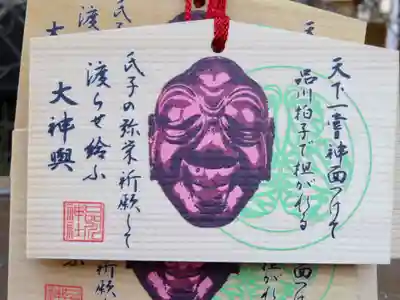 天下一嘗神面つけて
品川拍子で担がれる
氏子の弥栄祈願して
渡らせ給ふ
大神輿